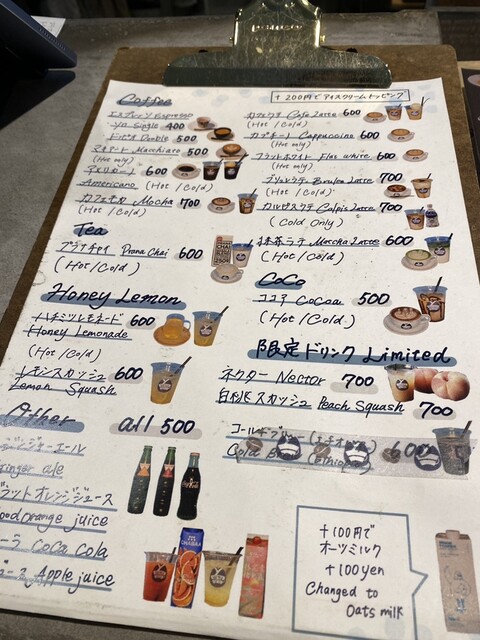 +200円でアイスクリームトッピング
Coffee
エスプレッソ Espresso
ソロ Single 400
ドピオ Double 500
マキアート Macchiato 500
(Hot only)
アメリカーノ 600
Americano (Hot / Cold)
カフェモカ Mocha 700
(Hot / Cold)
カフェラテ Cafe Latte 600
(Hot / Cold)
カプチーノ Cappuccino 600
(Hot only)
フラットホワイト Flat white 600
(Hot only)
ブリュレラテ Brulee Latte 700
(Hot / Cold)
カルピスラテ Calpis Latte 700
(Cold Only)
抹茶ラテ Maccha Latte 600
(Hot / Cold)
Tea
プラナチャイ Prana Chai 600
(Hot / Cold)
CoCo
ココア Cocoa 500
(Hot / Cold)
Honey Lemon
ハチミツレモネード 600
Honey Lemonade
(Hot / Cold)
レモンスカッシュ 600
Lemon Squash
限定ドリンク Limited
ネクター Nector 700
白桃スカッシュ Peach Squash 700
コールドブリュー
Cold
Other all 500
ジンジャーエール
Ginger ale
ブラッドオレンジジュース
ood orange juice
ーラ Coca Cola
ュース Apple juice
+100円で
オーツミルク
+100yen
Changed to
Oats milk